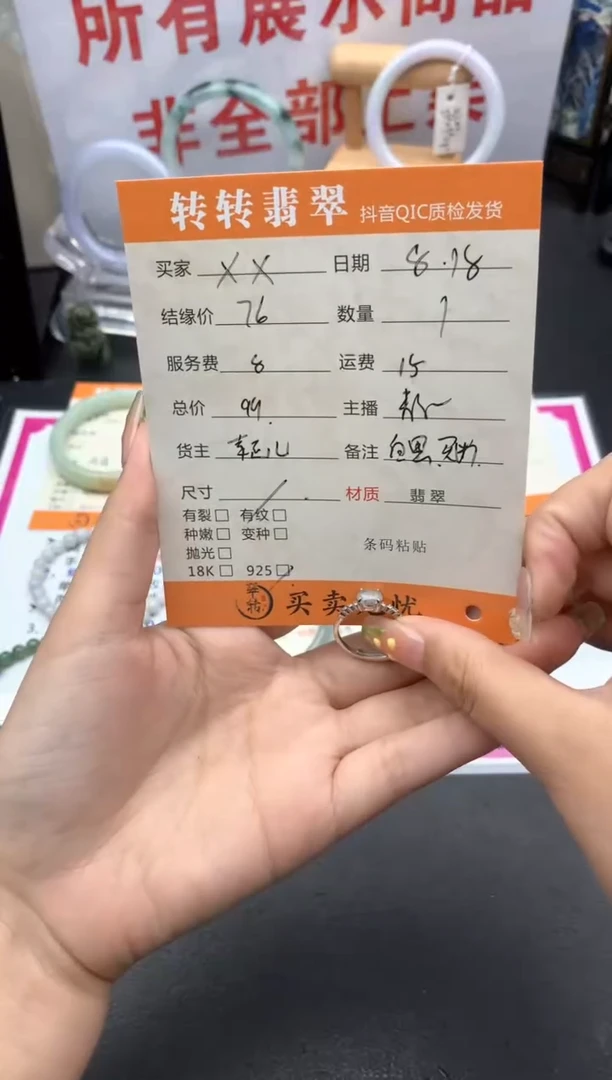 所有展示商品
非全部上架
转转翡翠 抖音QIC质检发货
买家 XX 日期 8.18
结缘价 76 数量 1
服务费 8 运费 15
总价 99. 主播
货主 备注
尺寸 / 材质 翡翠
有裂□ 有纹□
种嫩□ 变种□
抛光□ 条码粘贴
18K□ 925□
买卖 忧